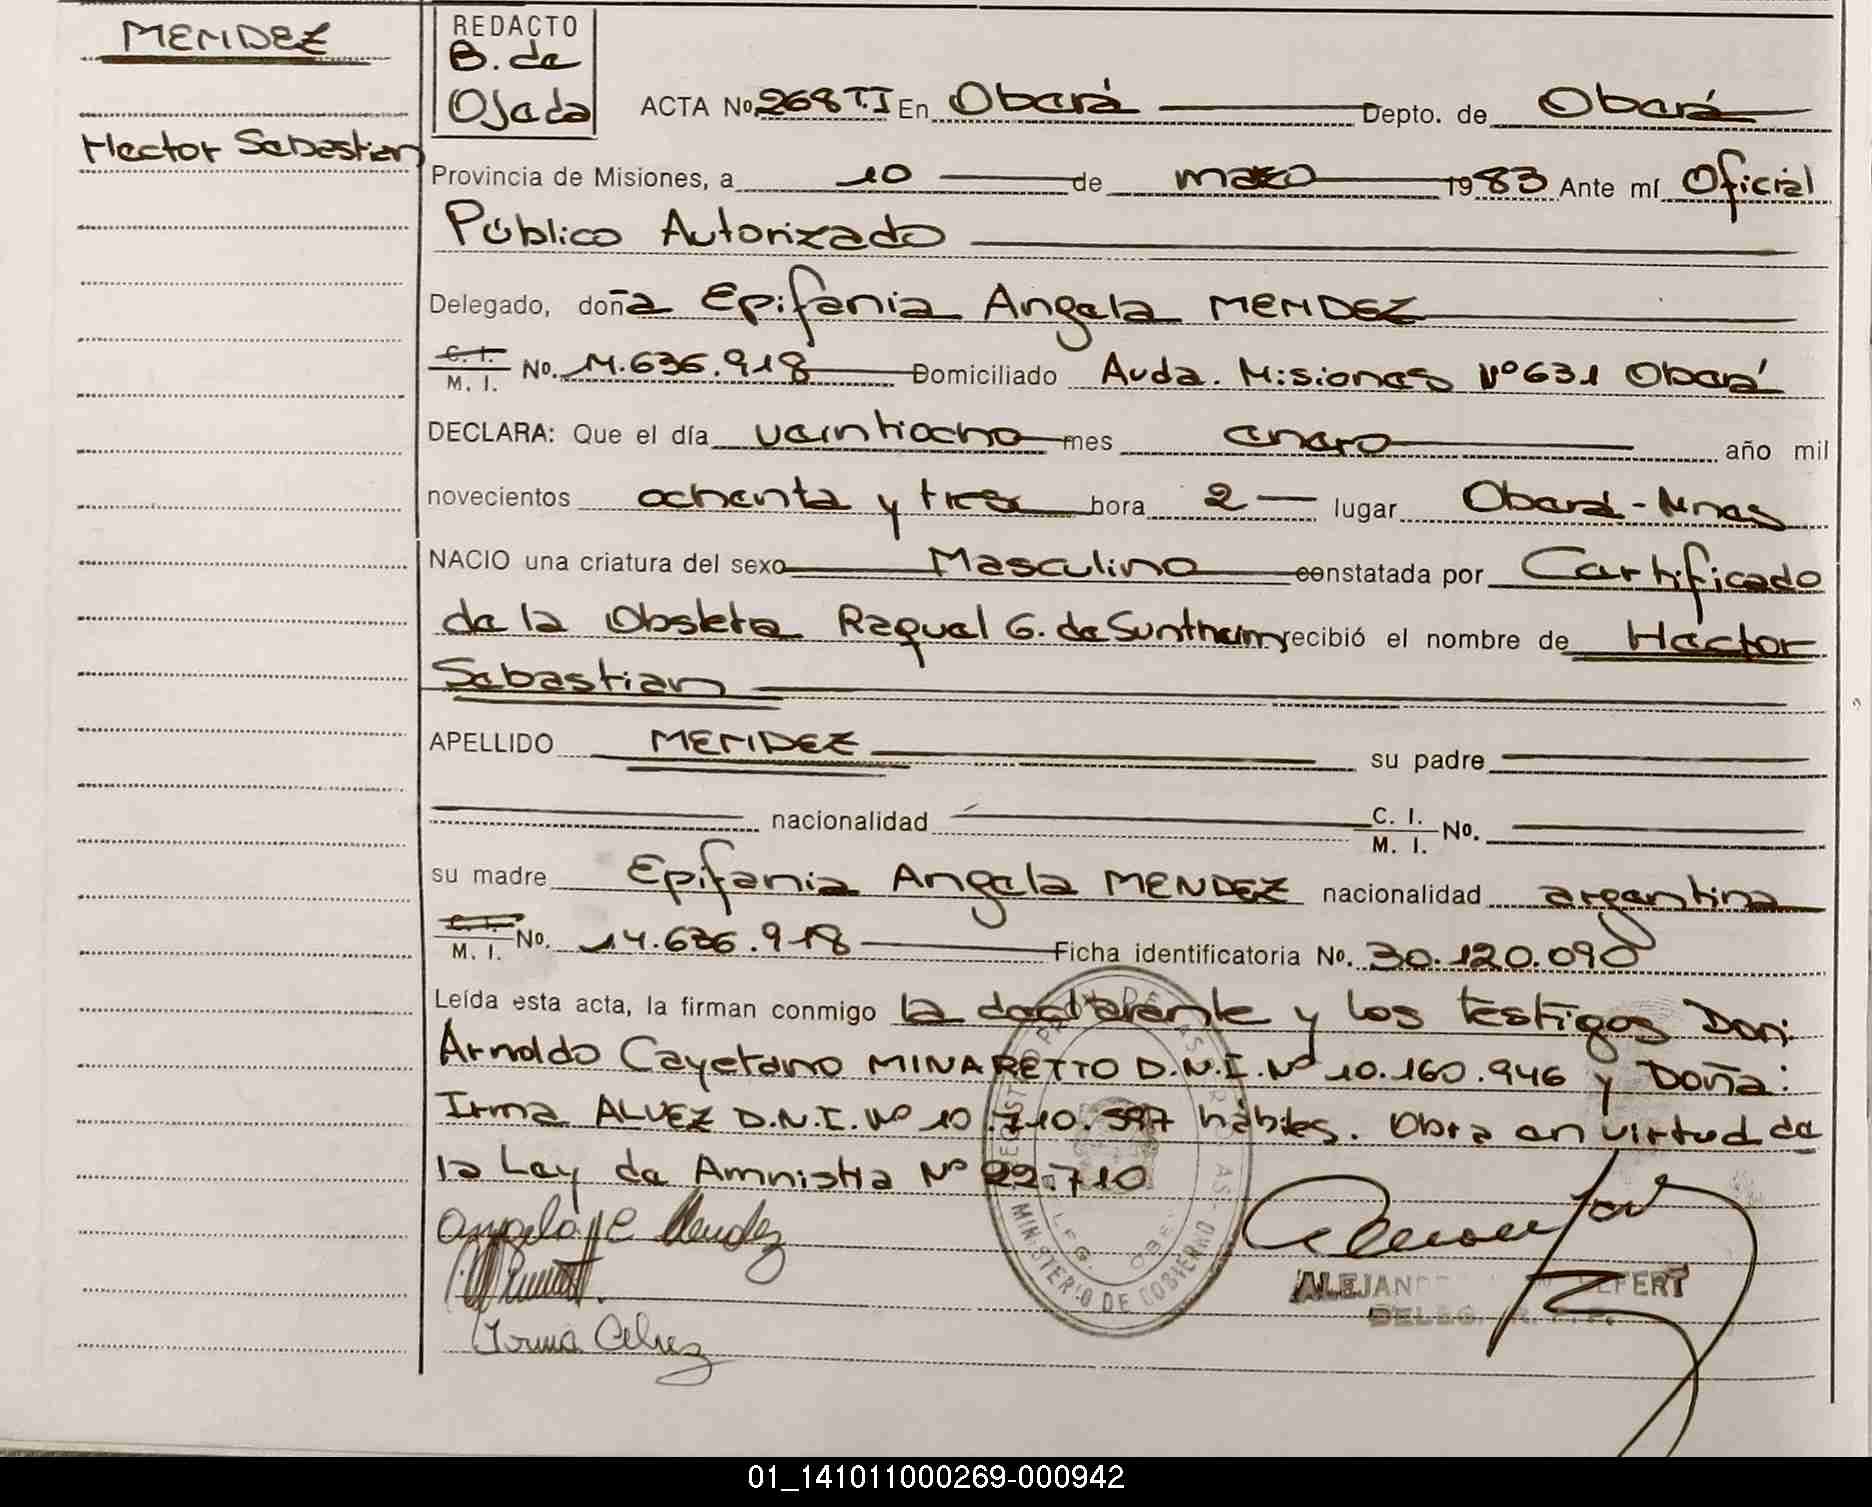 MENDEZ
Hector Sebastian
REDACTO
B. de
Ojeda
ACTA No. 268 T.I En Oberá Depto. de Oberá
Provincia de Misiones, a 10 de marzo 1983 Ante mí Oficial
Público Autorizado
Delegado, doña Epifania Angela MENDEZ
C. I.
M. I. No. 14.636.918 Domiciliado Avda. Misiones Nº 631 Oberá
DECLARA: Que el día veintiocho mes enero año mil
novecientos ochenta y tres hora 2 lugar Oberá - Mnes
NACIO una criatura del sexo Masculino constatada por Certificado
de la Obsteta Raquel G. de Suntheim recibió el nombre de Hector
Sebastian
APELLIDO MENDEZ su padre
nacionalidad C. I.
M. I. No.
su madre Epifania Angela MENDEZ nacionalidad argentina
C. I.
M. I. No. 14.636.918 Ficha identificatoria No. 30.120.090
Leída esta acta, la firman conmigo la declarante y los testigos Don:
Arnoldo Cayetano MINARETTO D.N.I. Nº 10.160.946 y Doña:
Irma ALVEZ D.N.I. Nº 10.710.597 hábiles. Obra en virtud de
la Ley de Amnistia Nº 22.710
Angela E Mendez
Irma Alvez
MINISTERIO DE GOBIERNO
01_141011000269-000942